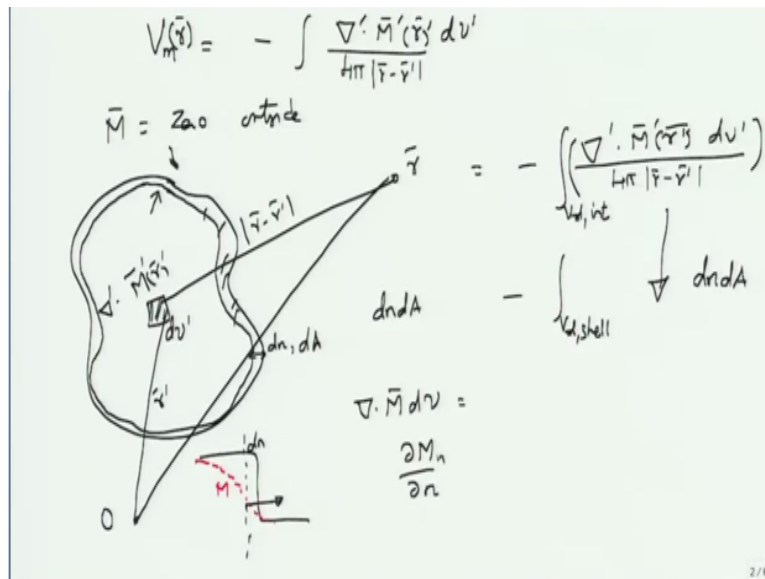 V'm(r̄) = - ∫ ∇'· M̄'(r̄)' dv' / 4π |r̄-r̄'|
M̄ = Zero outside
r̄
= - ∫vol,int (∇'· M̄'(r̄') dv' / 4π |r̄-r̄'|)
|r̄-r̄'|
∇'· M̄'(r̄')
dv'
dndA
- ∫vol,shell
dndA
dn, dA
r̄'
∇· M̄ dv =
∂Mn / ∂n
dn
M
O